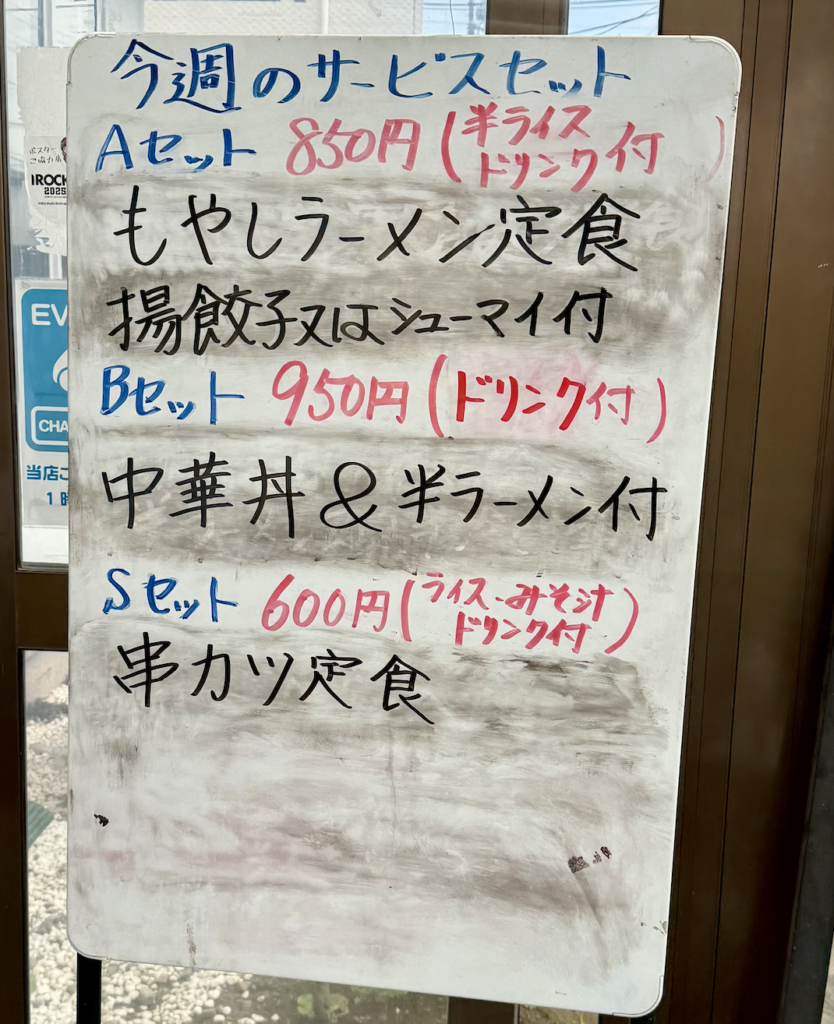 今週のサービスセット
Aセット 850円(半ライス
ドリンク付)
もやしラーメン定食
揚餃子又はシューマイ付
Bセット 950円(ドリンク付)
中華丼&半ラーメン付
Sセット 600円(ライス・みそ汁
ドリンク付)
串カツ定食
ポスター
IROCK
2025
EV
CHA
当店ご
1時